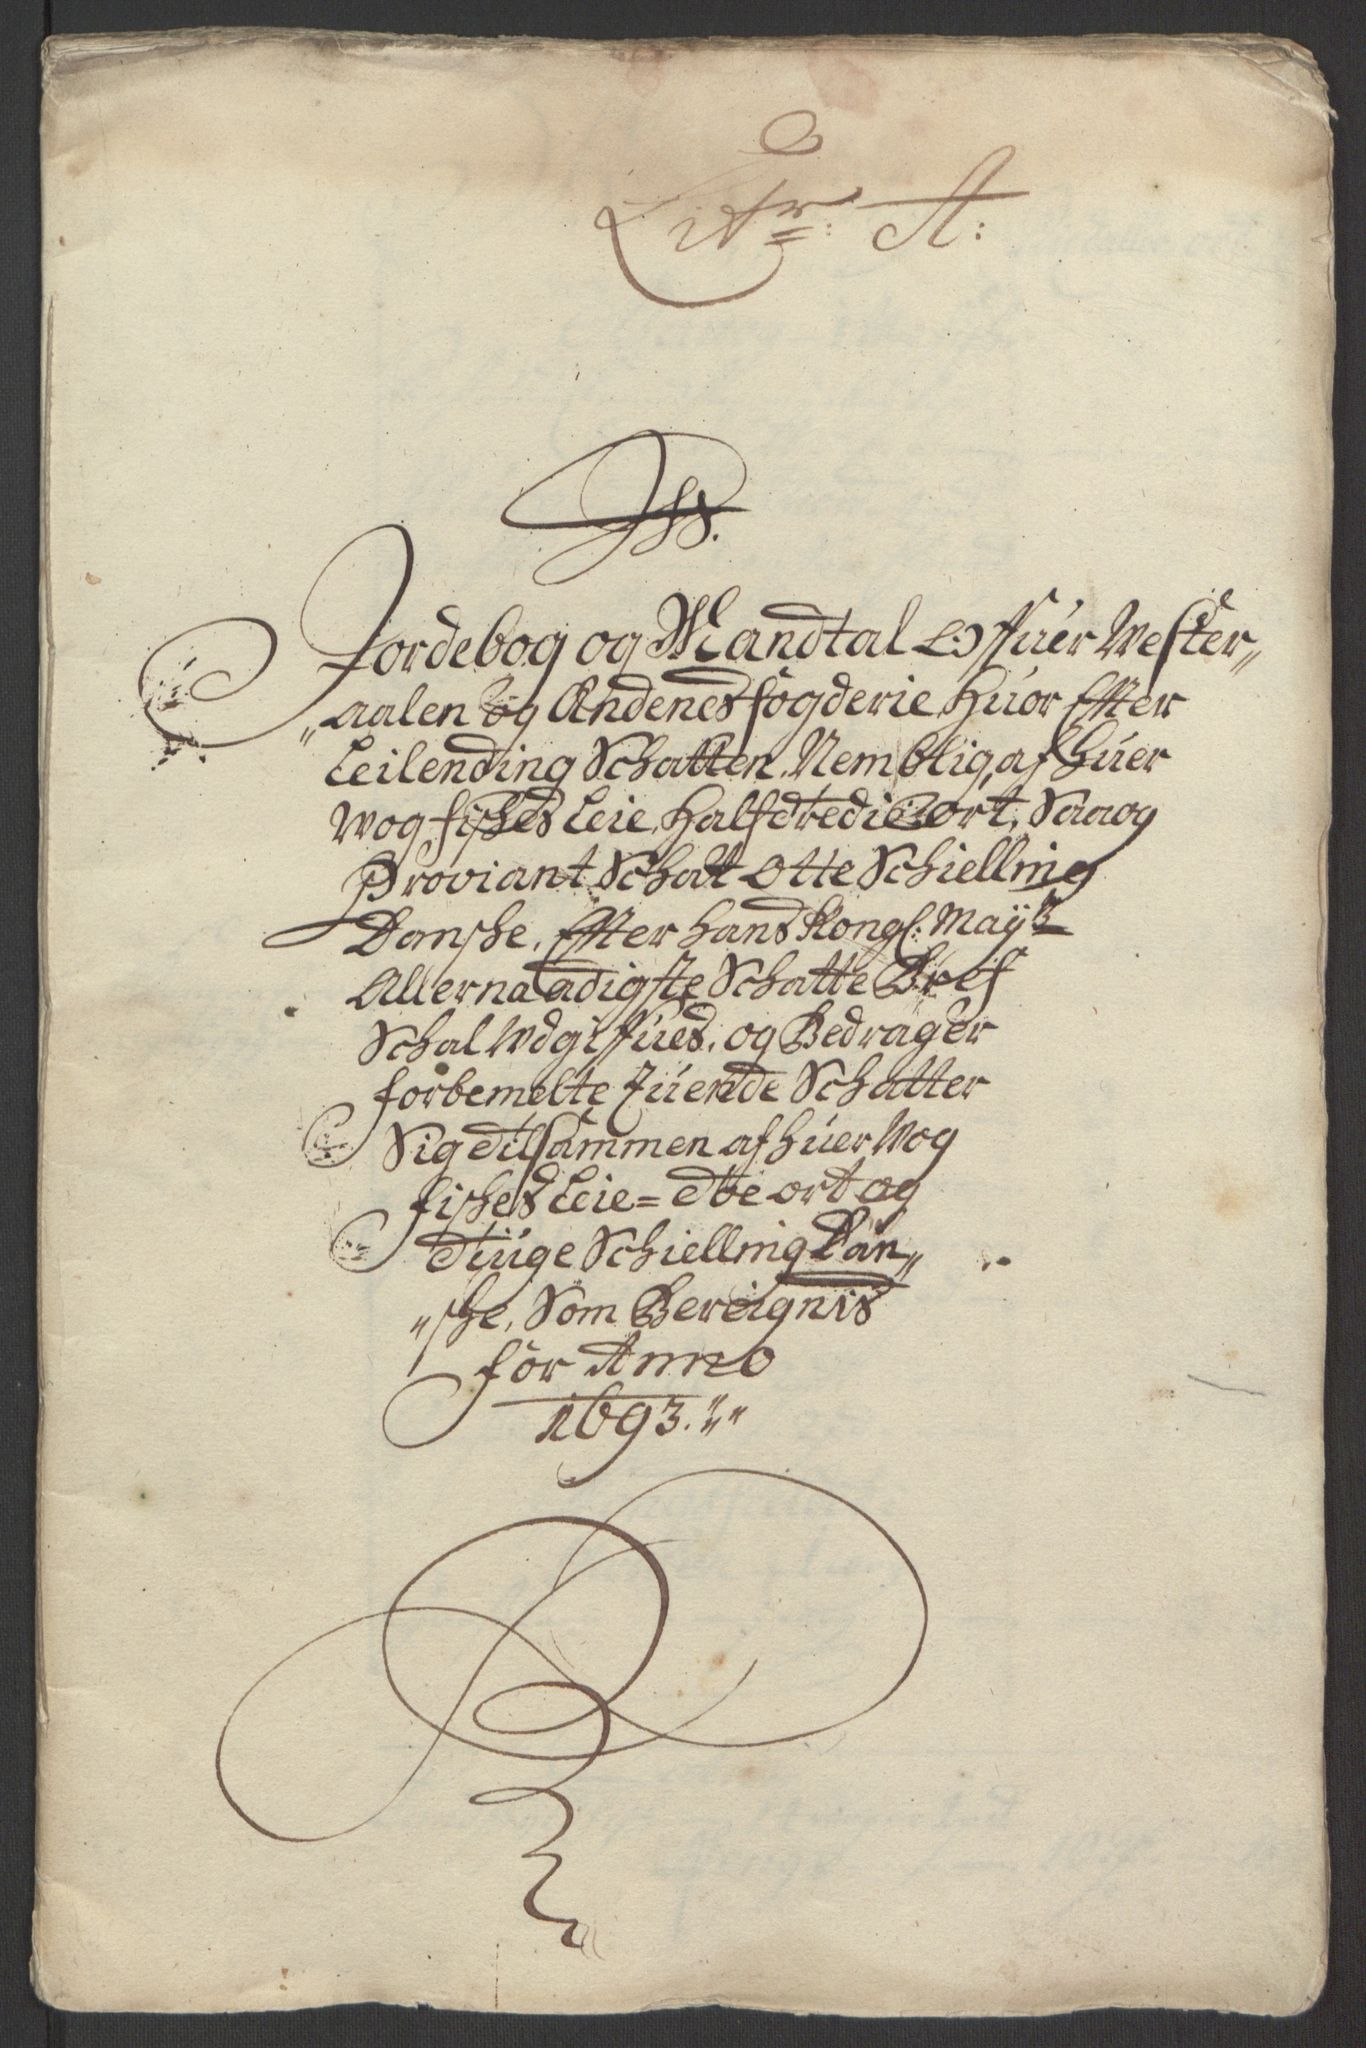 Litr: A:
Jhs.
Jordebog og Mandtal Offuer Vester„
„aalen og Andenes fogderie, Huor Effter
Leilending Schatten, Nemblig, af huer
Wog fiskes Leie, Halfdredie ort, Saa og
Proviant Schat Otte Schielling
Danske, Effter Hans Kongl: Mayts
Allernaadigste Schatte Bref
Schal Udgiffues, og Bedrager
forbemelte Tuende Schatter
Sig Tilsammen af huer Wog
fiskes Leie = Tre ort og
Tiuge Schielling Dan„
„ske, Som Bereignis
for Anno
1693.